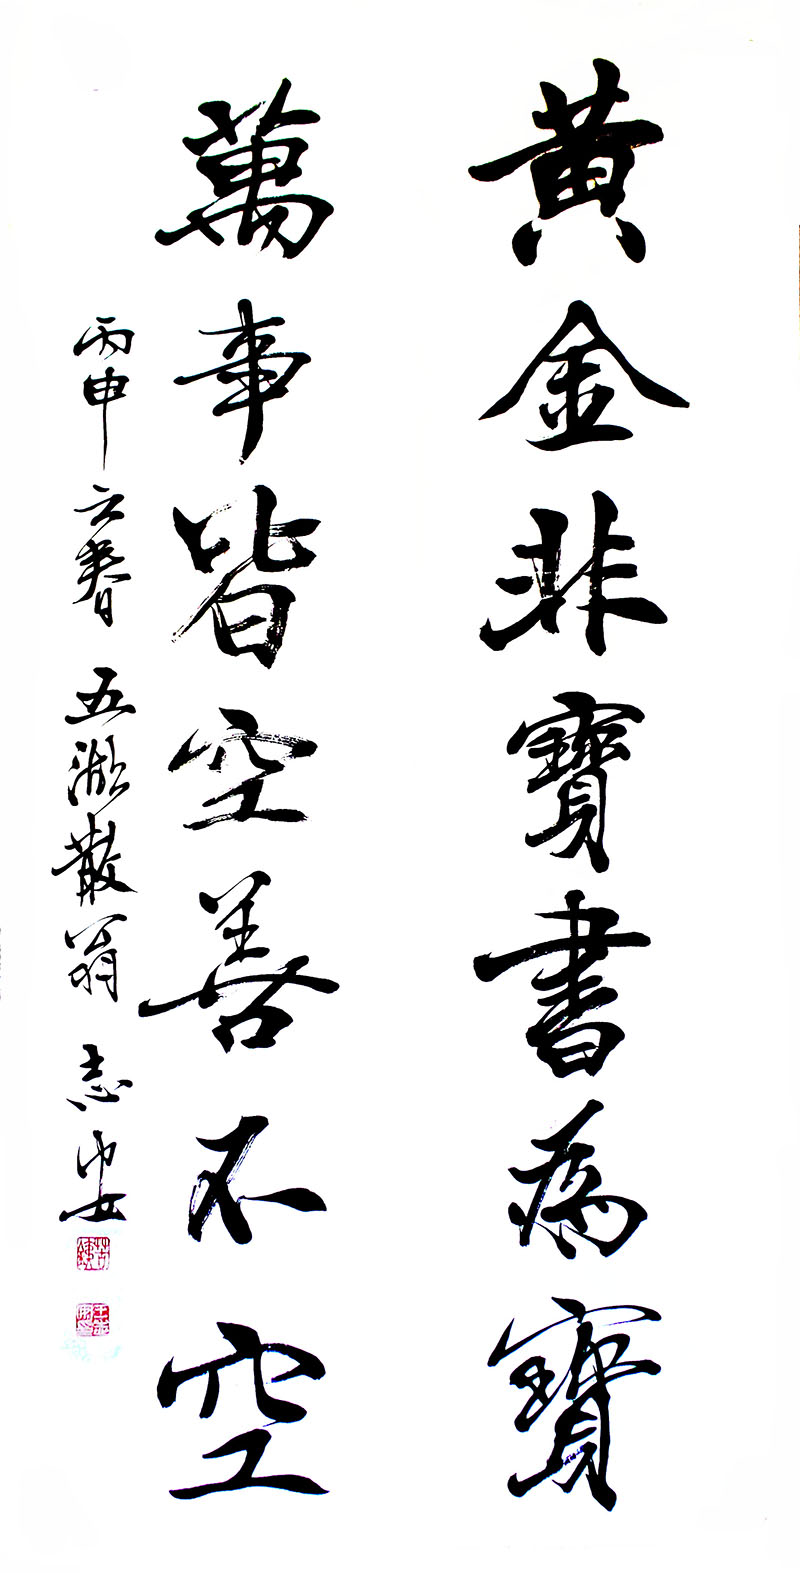 黄金非寶書為寶
萬事皆空善不空
丙申立春 五湖散翁 志忠